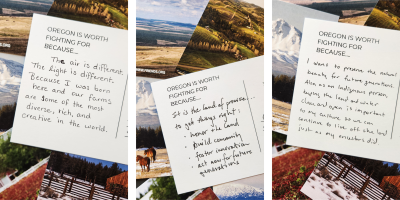 OREGON IS WORTH
FIGHTING FOR
BECAUSE...
The air is different.
The light is different.
Because I was born
here and our farms
are some of the most
diverse, rich, and
creative in the world.
OREGON IS WORTH
FIGHTING FOR
BECAUSE...
It is the land of promise
to get things right:
• honor the land
• Build community
• foster innovation
• act now for future
generations
OREGON IS WORTH
FIGHTING FOR
BECAUSE...
I want to preserve the natural
beauty for future generations.
Also as an Indigenous person,
keeping the land and water
clean and open is important
to my culture. So we can
continue to live off the land
just as my ancestors did.